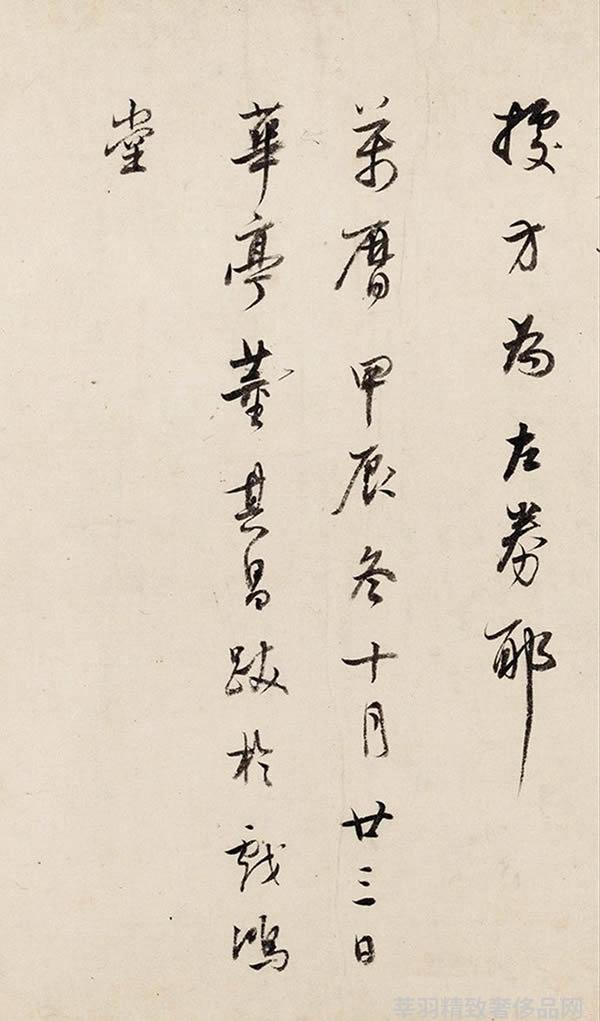 據方為左券耶
萬曆甲辰冬十月廿三日
華亭董其昌跋於戲鴻
堂
莘羽精致奢侈品网